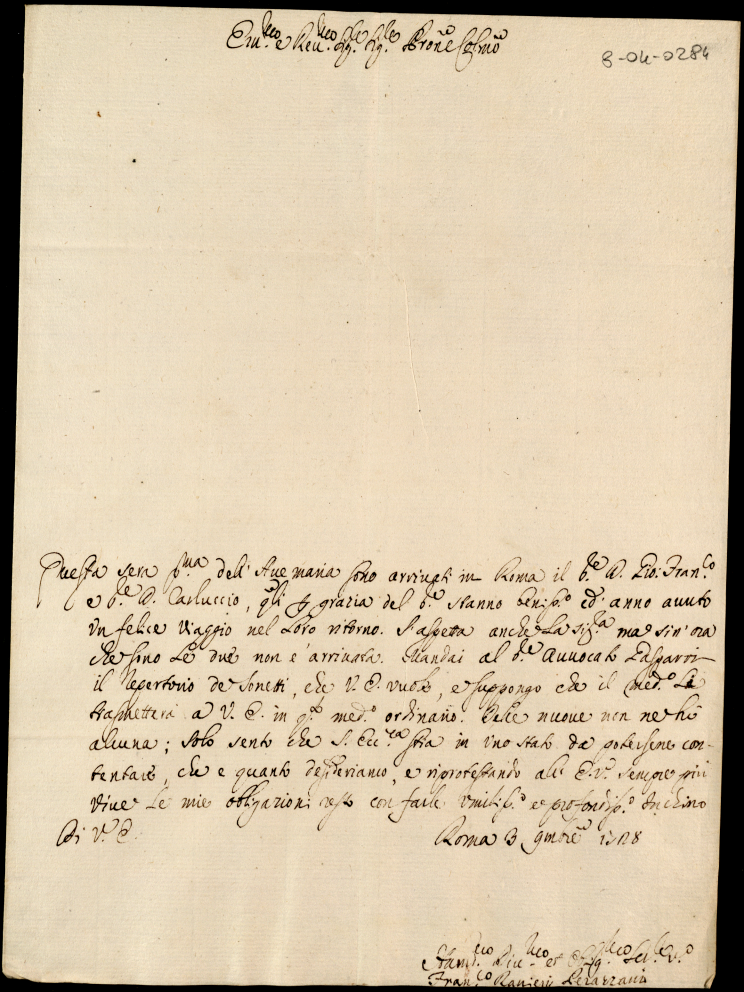 Em.mo e Rev.mo Sig.re Sig.re Prone Col.mo
3-04-0284
Questa sera p.ma dell' Ave maria sono arrivati in Roma il S.re D. Gio: Fran.co
e S.re D. Carluccio, q.li p grazia del S.re stanno beniss.o ed' anno avuto
un felice viaggio nel loro ritorno. S'aspetta anche la Sig.ra ma sin' ora
che sono le due non e' arrivata. Mandai al S.re Avvocato Gasparri
il Repertorio de Sonetti, che V. E. vuole, e suppongo che il med.o Le
trasmetterà a V. E. in q.to med.o ordinario. Delle nuove non ne hò
alcuna; solo sento che S. Ecc.za stia in uno stato da potersene con-
tentare, che e quanto desideriamo, e riprotestando all' E.V. sempre più
vive le mie obligazioni resto con farle umiliss.o e profondiss.o Inchino
Di V. E.
Roma 3 9mbre 1728
Fran.co Ranieri